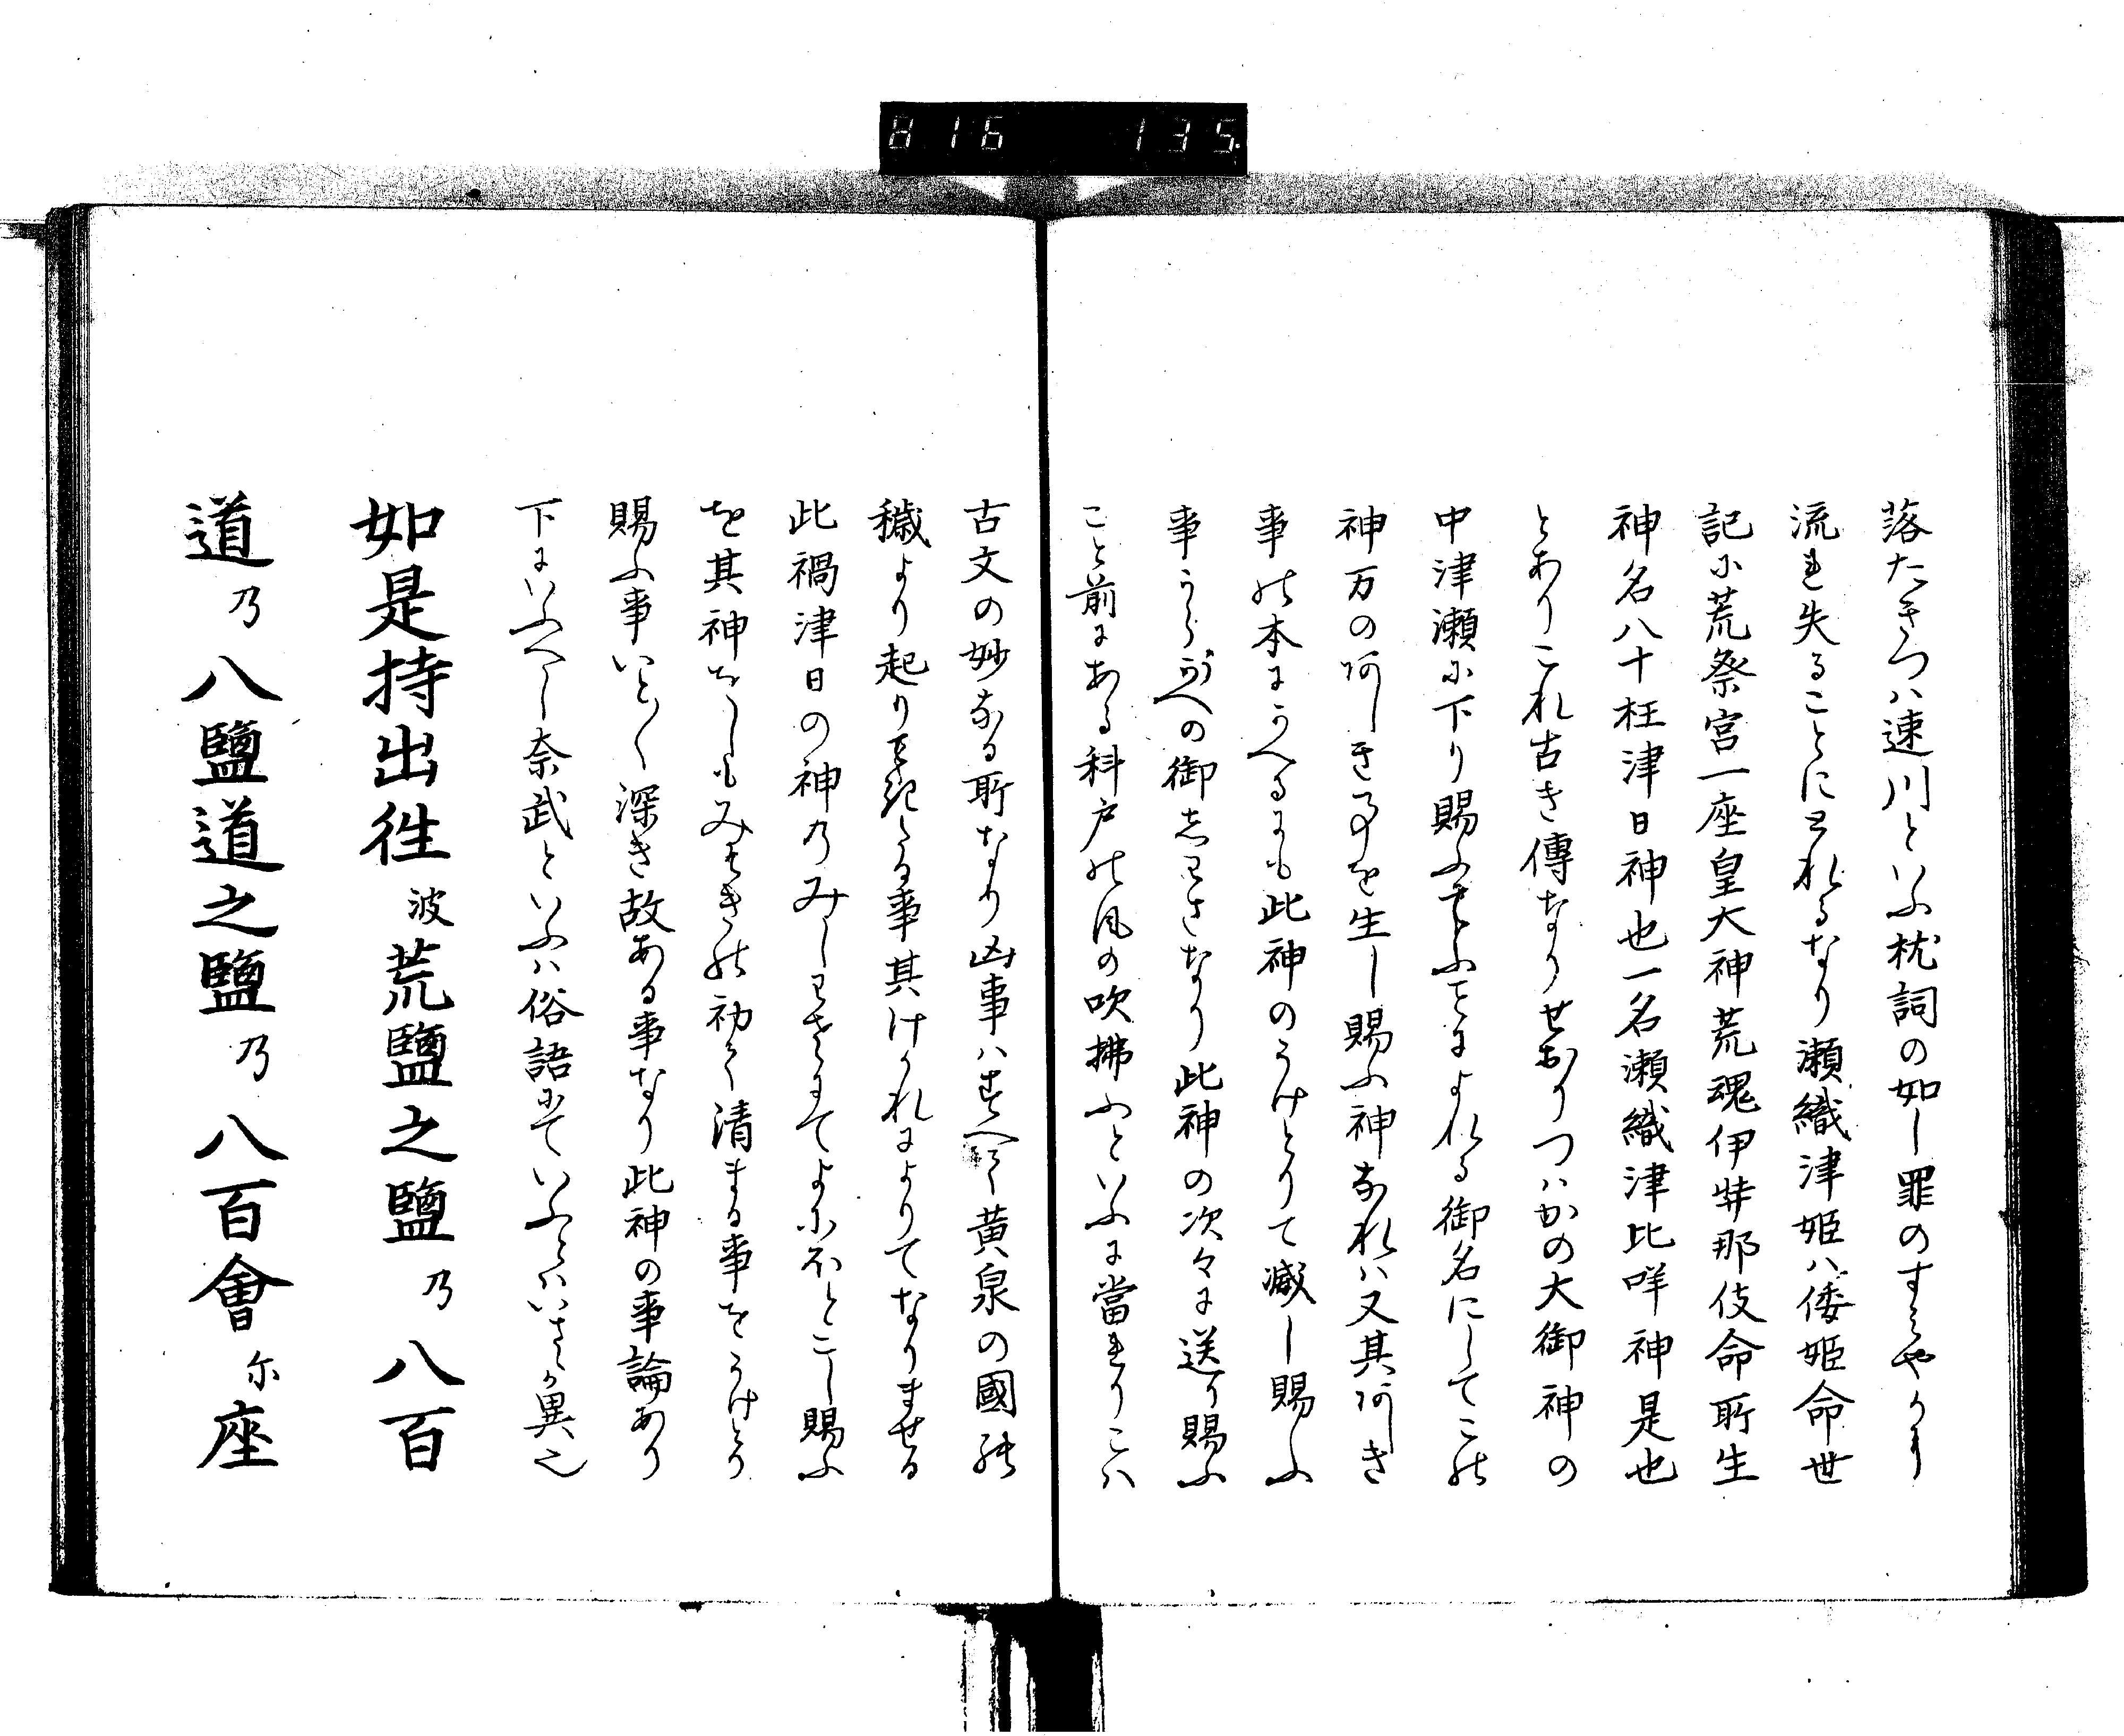 816 135
落たきつハ速川といふ枕詞の如し罪のすミやかに
流れ失ることにとれるなり瀬織津姫ハ倭姫命世
記に荒祭宮一座皇大神荒魂伊弉那伎命所生
神名八十枉津日神也一名瀬織津比咩神是也
とありこれ古き傳なりせおりつハかの大御神の
中津瀬に下り賜ふ よれる御名にしてこの
神万のあしき事を生し賜ふ神なれハ又其あしき
事の本にかへるにも此神のうけとりて滅し賜ふ
事うらうへの御しわさなり此神の次々に送り賜ふ
こと前にある科戸の風の吹拂ふといふに當れりこハ
古文の妙なる所なり凶事ハすへて黄泉の國の
穢より起り来る事其けかれによりてなりませる
此禍津日の神のみしわさにてよにほとこし賜ふ
を其神をしもみそきの初て清まる事をうけとり
賜ふ事いと〱深き故ある事なり此神の事論あり
下にいふへし奈武といふハ俗語にていふとハいさゝか異之
如是持出往波荒鹽之鹽乃八百
道乃八鹽道之鹽乃八百會尓座